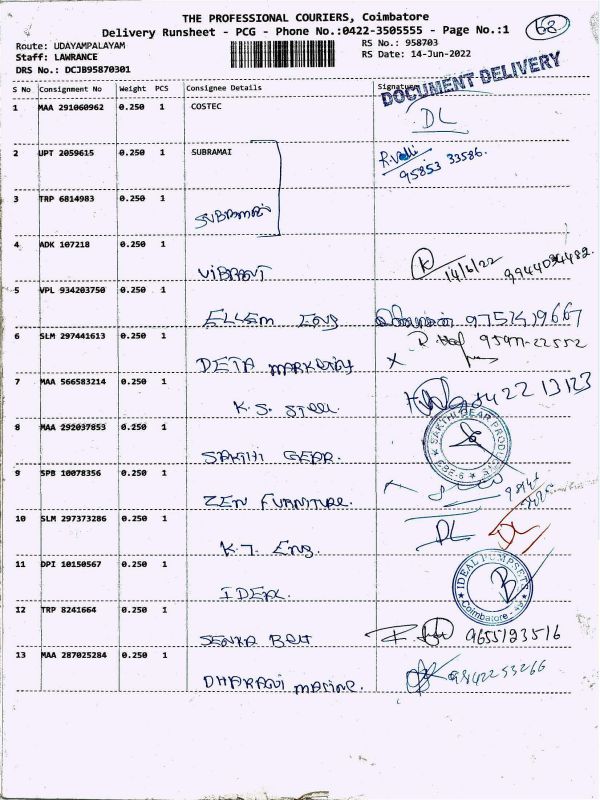 THE PROFESSIONAL COURIERS, Coimbatore
Delivery Runsheet - PCG - Phone No.:0422-3505555 - Page No.:1
68
Route: UDAYAMPALAYAM
RS No.: 958703
Staff: LAWRANCE
RS Date: 14-Jun-2022
DRS No.: DCJB95870301
S No Consignment No Weight PCS Consignee Details Signature
DOCUMENT DELIVERY
1 MAA 291060962 0.250 1 COSTEC DL
2 UPT 2059615 0.250 1 SUBRAMAI R.Valli
95853 33586.
3 TRP 6814983 0.250 1
SUBRAMAI
4 ADK 107218 0.250 1
VIBRANT K 14/6/22 9944094482.
5 VPL 934203750 0.250 1
ELLEM ENG 9751419667
6 SLM 297441613 0.250 1 95977-22552
DETA MARKETING X
7 MAA 566583214 0.250 1
K.S. STEEL. 0422 13123
8 MAA 292037853 0.250 1
SAKTHI GEAR. SAKTHI GEAR PRODUCTS CBE-6
9 SPB 10078356 0.250 1
ZEN FURNITURE.
10 SLM 297373286 0.250 1 DL DL
K.J. ENG.
11 DPI 10150567 0.250 1
IDEAL IDEAL PUMPSETS Coimbatore - 49
12 TRP 8241664 0.250 1
SENKA BELT 9655193516
13 MAA 287025284 0.250 1
DHARANI MARINE. 9842253266